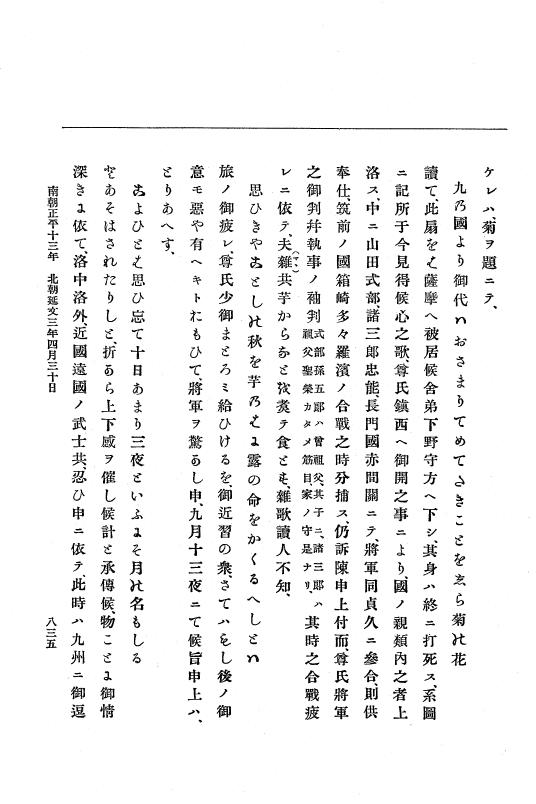 ケレハ、菊ヲ題ニテ、
九乃國より御代ハおさまりてめてたきことをゑら菊の花
讀て、此扇をは薩摩へ被居候舍弟下野守方ヘ下シ、其身ハ終ニ打死ス、系圖
ニ記所于今見得候心之歌、尊氏鎭西ヘ御開之事ニより、國ノ親類內之者上
洛ス、中ニ山田式部諸三郎忠能、長門國赤間關ニテ、將軍同貞久ニ參合、則供
奉仕、筑前ノ國箱崎多々羅濱ノ合戰之時分捕ス、仍訴陳申上付而、尊氏將軍
之御判幷執事ノ袖判式部孫五郎ハ曾祖父、其子ニ、諸三郎ハ祖父聖榮カタメ筋目、家ノ守是ナリ、其時之合戰疲
レニ依テ、夫雜共芋からなと汝煑テ食とも、雜歌讀人不知、
(マヽ)
思ひきやことしの秋を芋乃はよ露の命をかくるへしとハ
旅ノ御疲レ、尊氏少御まとろミ給ひけるを、御近習の衆、さてハもし後ノ御
意モ惡や有ヘキトおもひて、將軍ヲ驚かし申、九月十三夜ニて候旨申上ハ、
とりあへす、
こよひとは思ひ忘て十日あまり三夜といふよそ月の名もしる
とあそはされたりしと、折から上下感ヲ催し候計と承傳候、物ことよ御情
深きよ依て、洛中洛外近國遠國ノ武士共、忍ひ申ニ依テ、此時ハ九州ニ御逗
南朝正平十三年 北朝延文三年四月三十日
八三五